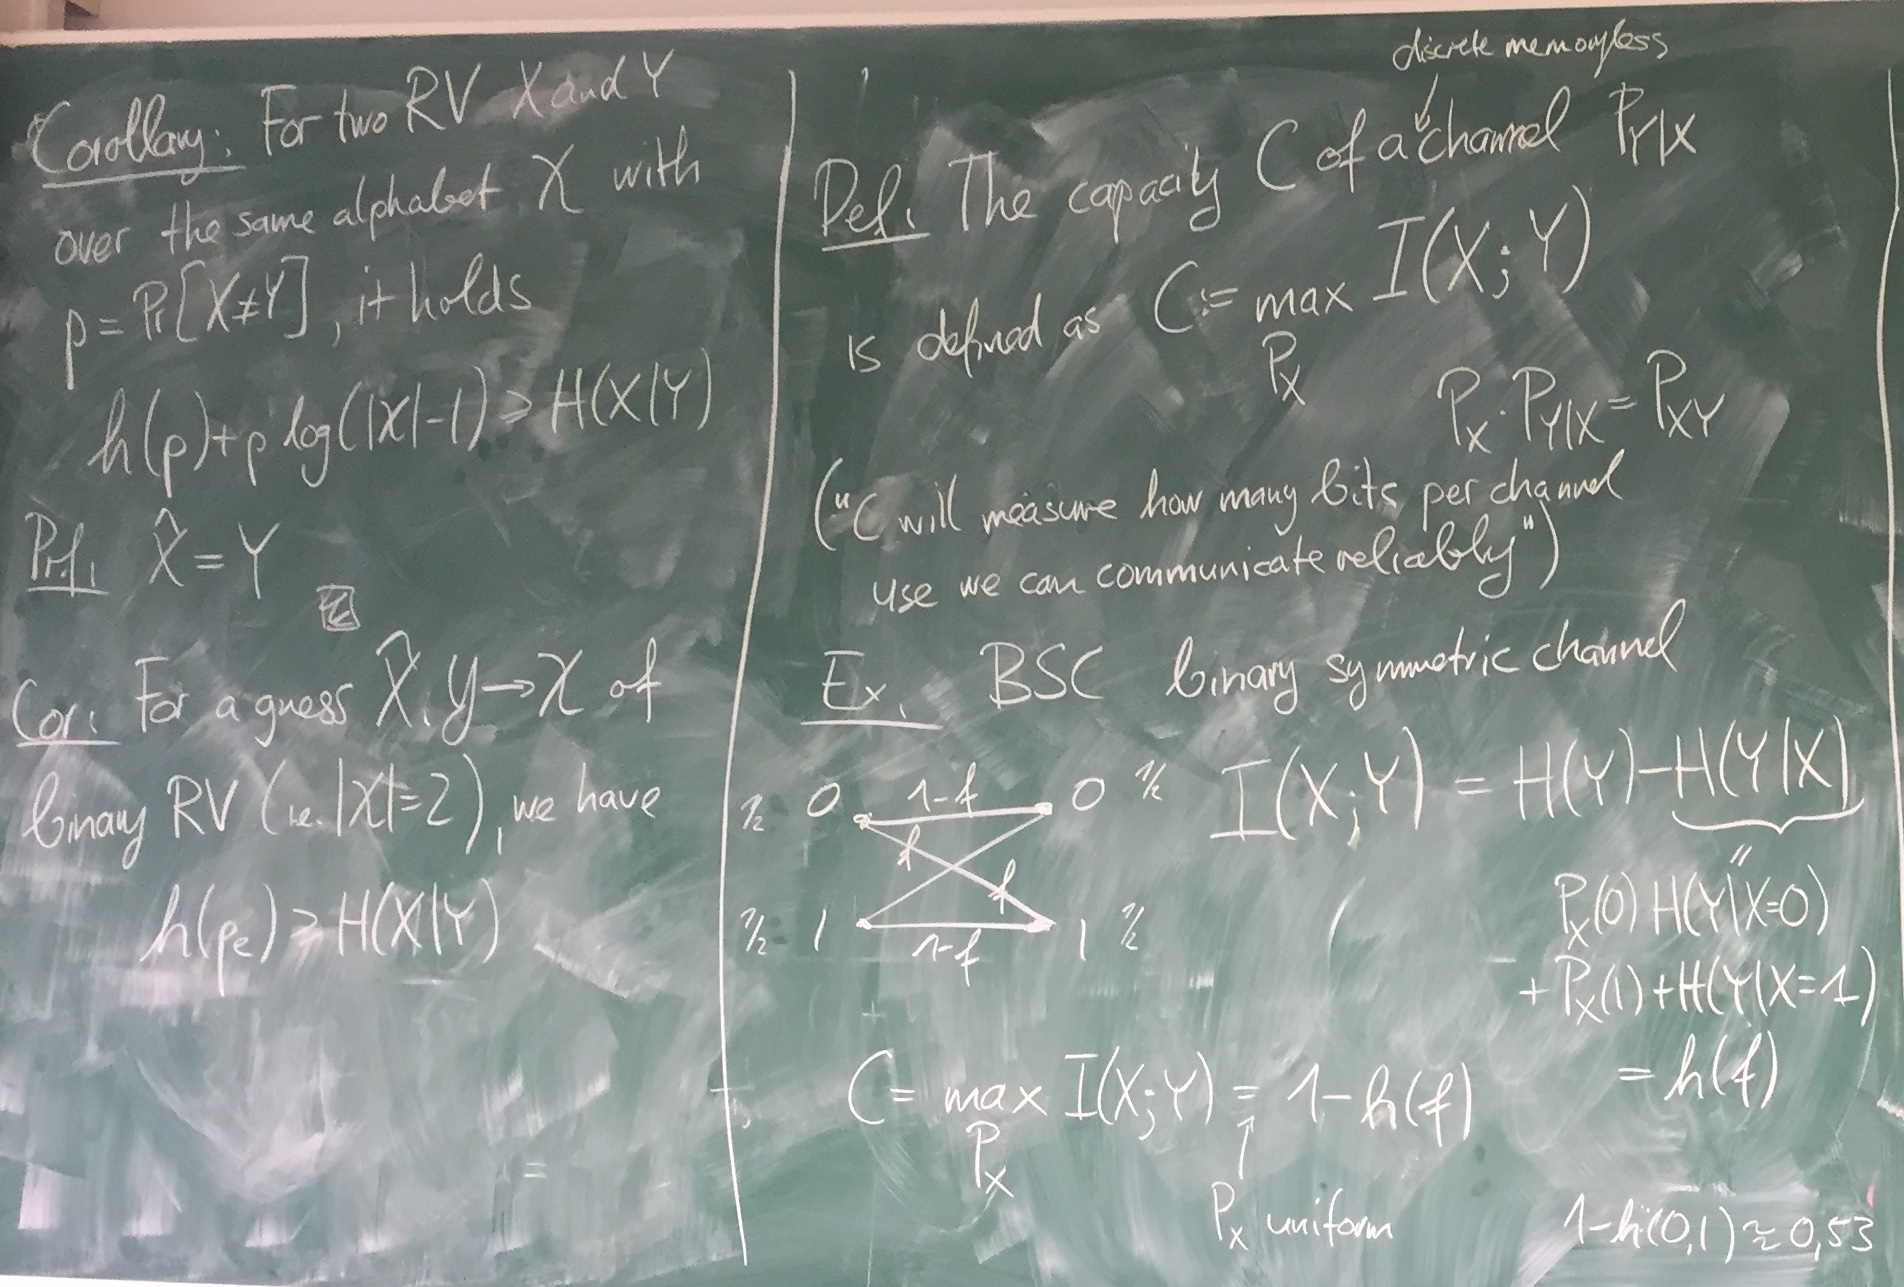 Corollary: For two RV X and Y
over the same alphabet 𝒳 with
p = Pr[X≠Y], it holds
h(p)+p log(|𝒳|-1) ≥ H(X|Y)
Prf: X̂ = Y
Cor: For a guess X̂: 𝒴→𝒳 of
binary RV (i.e. |𝒳|=2), we have
h(pe) ≥ H(X|Y)
discrete memoryless
Def: The capacity C of a channel P_{Y|X}
is defined as C := max I(X;Y)
P_X
P_X · P_{Y|X} = P_{XY}
("C will measure how many bits per channel
use we can communicate reliably")
Ex. BSC binary symmetric channel
½ 0 1-f 0 ½
f f
½ 1 1-f 1 ½
I(X;Y) = H(Y) - H(Y|X)
=
P_X(0) H(Y|X=0)
+ P_X(1) + H(Y|X=1)
= h(f)
C = max I(X;Y) = 1-h(f)
P_X
P_X uniform
1-h(0,1) ≈ 0,53